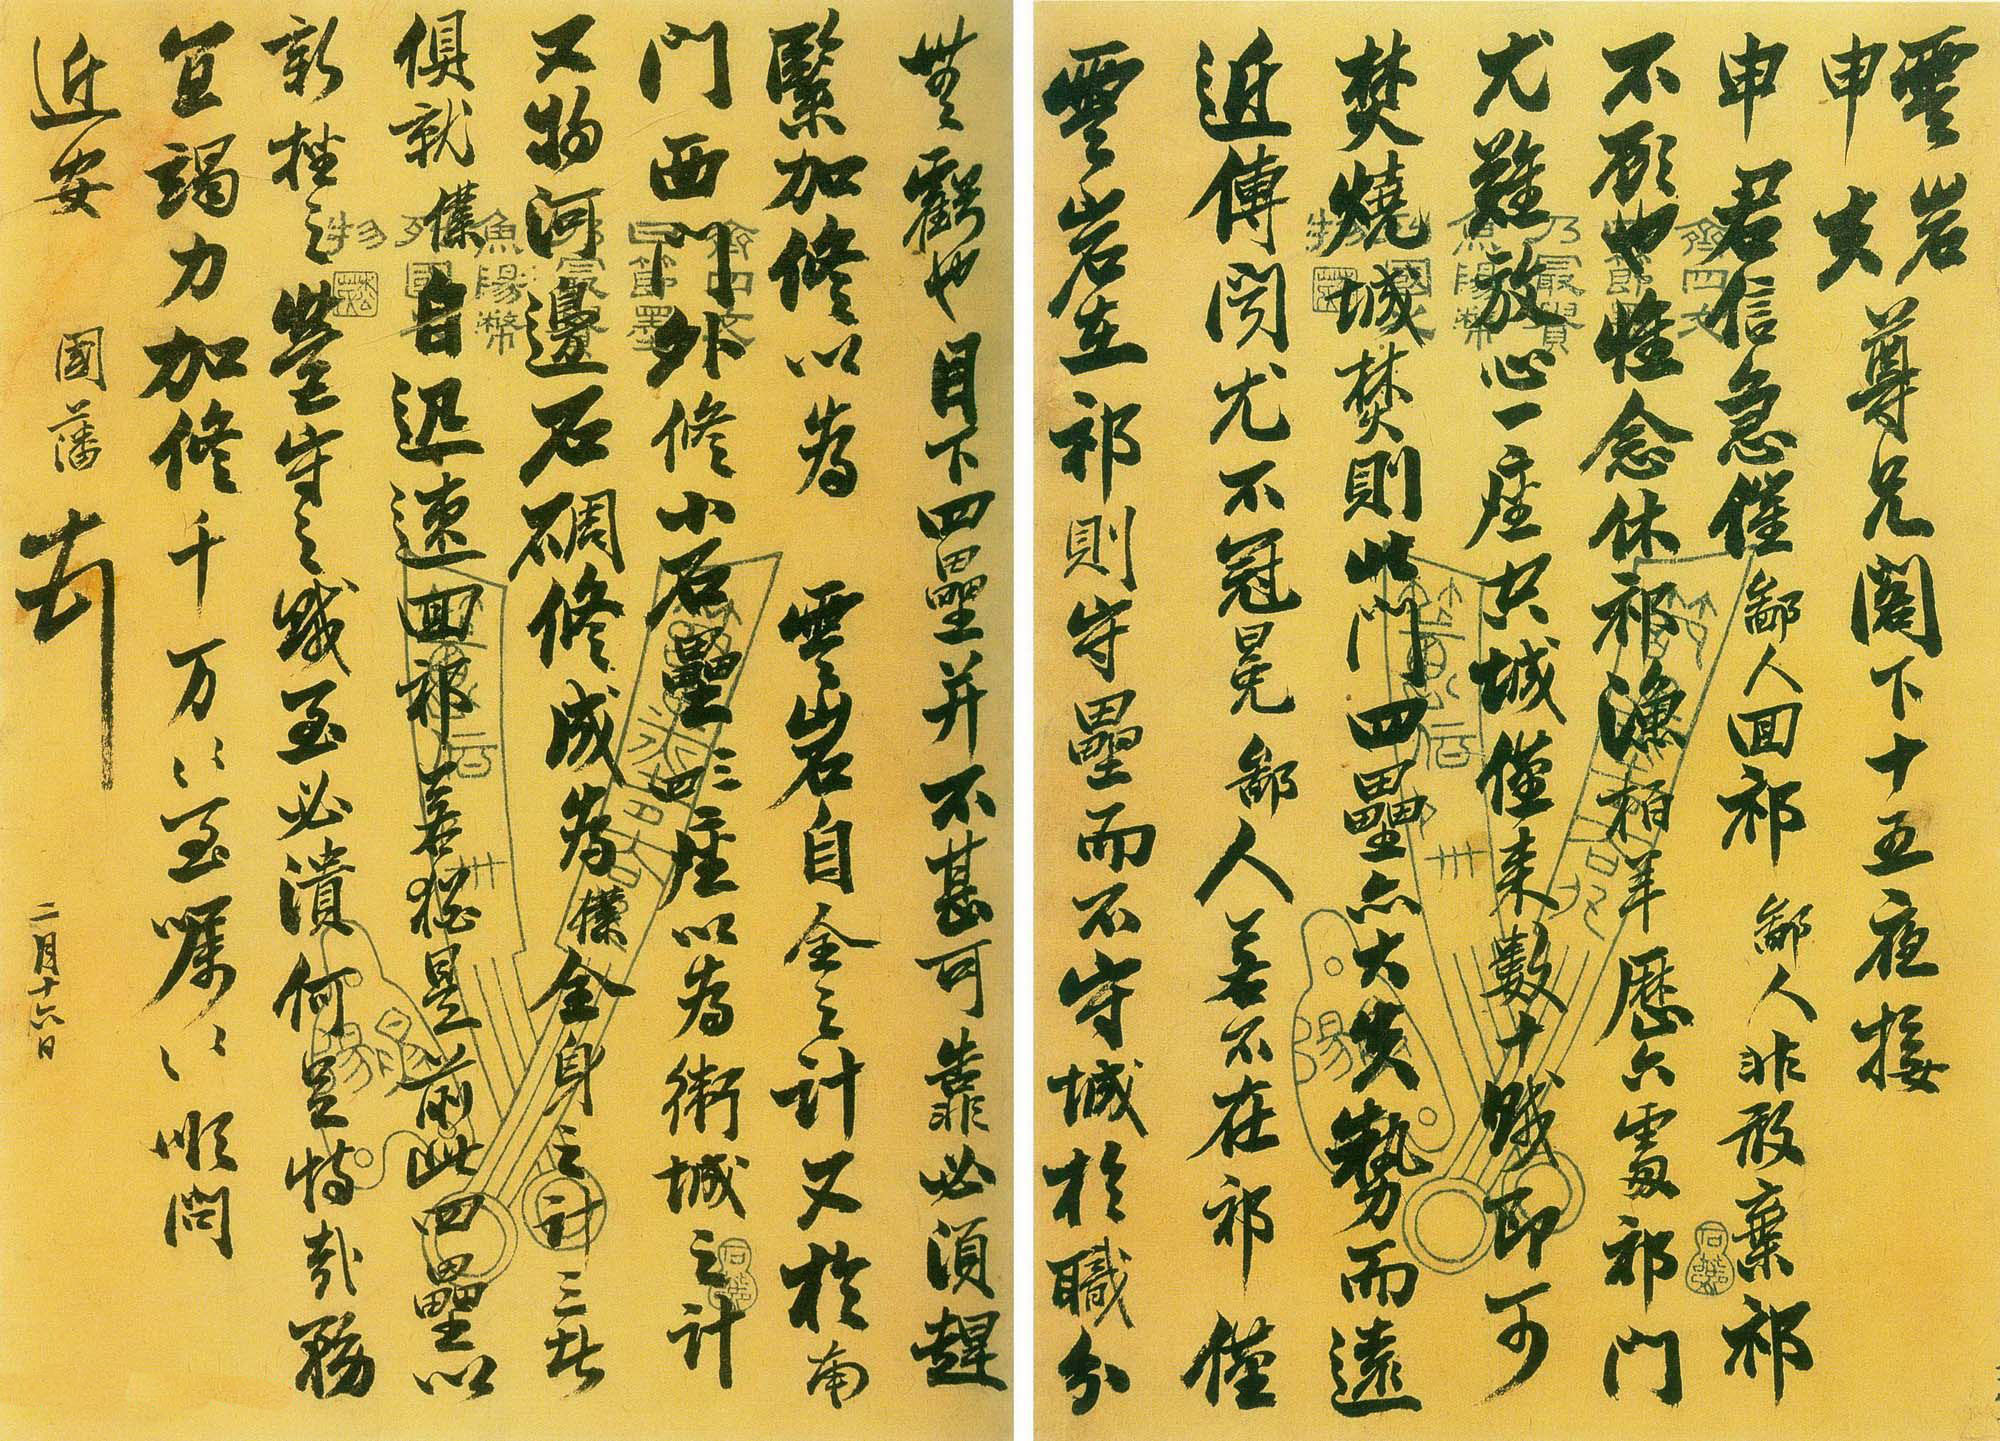 雲岩
申夫尊兄閣下十五夜接
申君信急催鄙人回祁鄙人非敢棄祁
不顧也惟念休祁漁柏羊歷六處祁門
尤難放心一座空城僅來數十賊即可
焚燒城焚則此門四壘亦大失勢而遠
近傳聞尤不冠冕鄙人若不在祁僅
雲岩在祁則守壘而不守城於職分
無虧也目下四壘并不甚可靠必須趕
緊加修以為雲岩自全之計又於南
門西門外修小石壘三四座以為衛城之計
又物河邊石碉修成為僕全身之計三者
俱就僕自迅速回祁若猶是前此四壘以
新挫之營守之賊至必潰何足恃哉務
宜竭力加修千万〻至囑〻順問
近安 國藩
二月十六日
齊四文
魚陽幣
列國
物